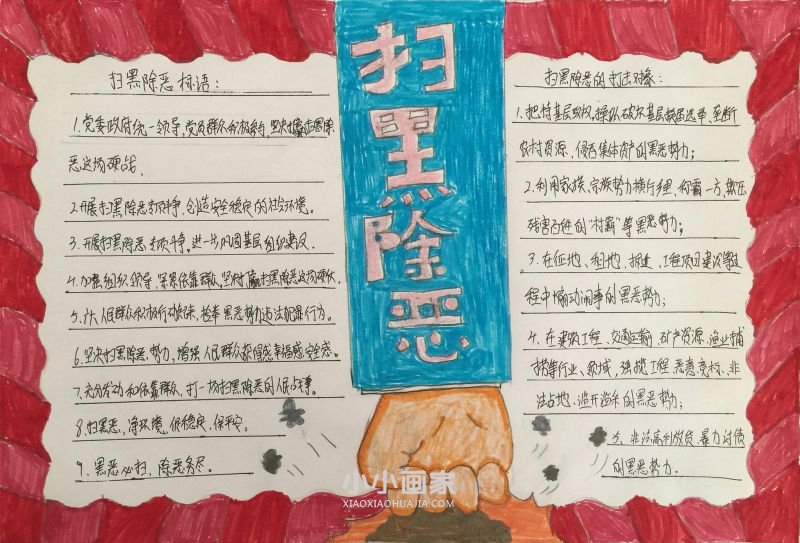 扫黑除恶标语：
1.党委政府统一领导，党员群众积极参与，坚决打赢扫黑除
恶这场硬战.
2.开展扫黑除恶专项斗争，创造安全稳定的社会环境。
3.开展扫黑除恶专项斗争，进一步巩固基层组织建设.
4.加强组织领导，紧紧依靠群众，坚决打赢扫黑除恶这场硬仗.
5.广大人民群众积极行动起来，检举黑恶势力违法犯罪行为。
6.坚决扫黑除恶势力，增强人民群众获得感幸福感安全感。
7.充分发动和依靠群众，打一场扫黑除恶的人民战争。
8.扫黑恶，净环境，促稳定，保平安。
9.黑恶必扫，除恶务尽.
扫黑除恶
扫黑除恶的打击对象：
1.把持基层政权，操纵破坏基层换届选举、垄断
农村资源、侵吞集体资产的黑恶势力；
2.利用家族、宗族势力横行乡里、称霸一方、欺压
残害百姓的“村霸”等黑恶势力；
3.在征地、租地、拆迁、工程项目建设等过
程中煽动闹事的黑恶势力；
4.在建筑工程、交通运输、矿产资源、渔业捕
捞等行业、领域，强揽工程、恶意竞标、非
法占地、滥开滥采的黑恶势力；
5.非法高利放贷、暴力讨债
的黑恶势力.
小小画家
XIAOXIAOHUAJIA.COM